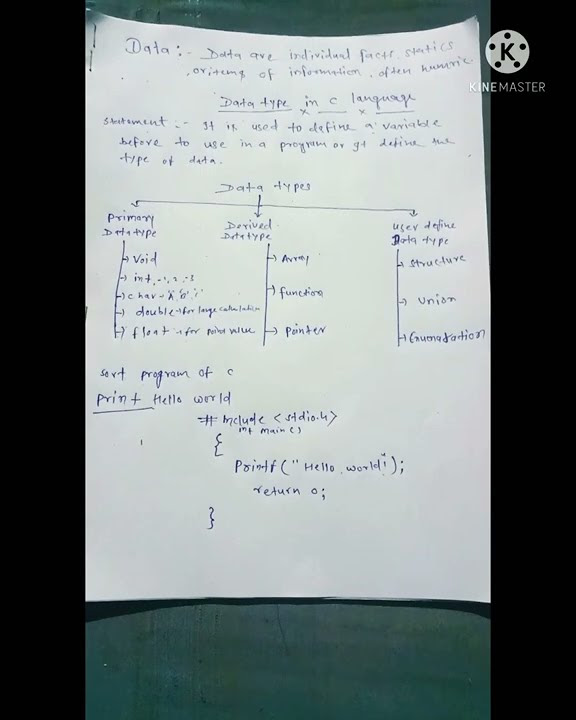 Data :- Data are individual facts, statics
, or items of information, often numeric
KINEMASTER
Data type in c language
Statement :- It is used to define a variable
before to use in a program or gt define the
type of data.
Data types
Primary
Data type
Void
int -1, 2, -3
char -
double - for large calculation
float - for point value
Derived
Datatype
Array
function
Pointer
User define
Data type
Structure
Union
Enumaration
Sort program of c
Print Hello world
# include <stdio.h>
int main ()
{
Printf ("Hello world");
return 0;
}